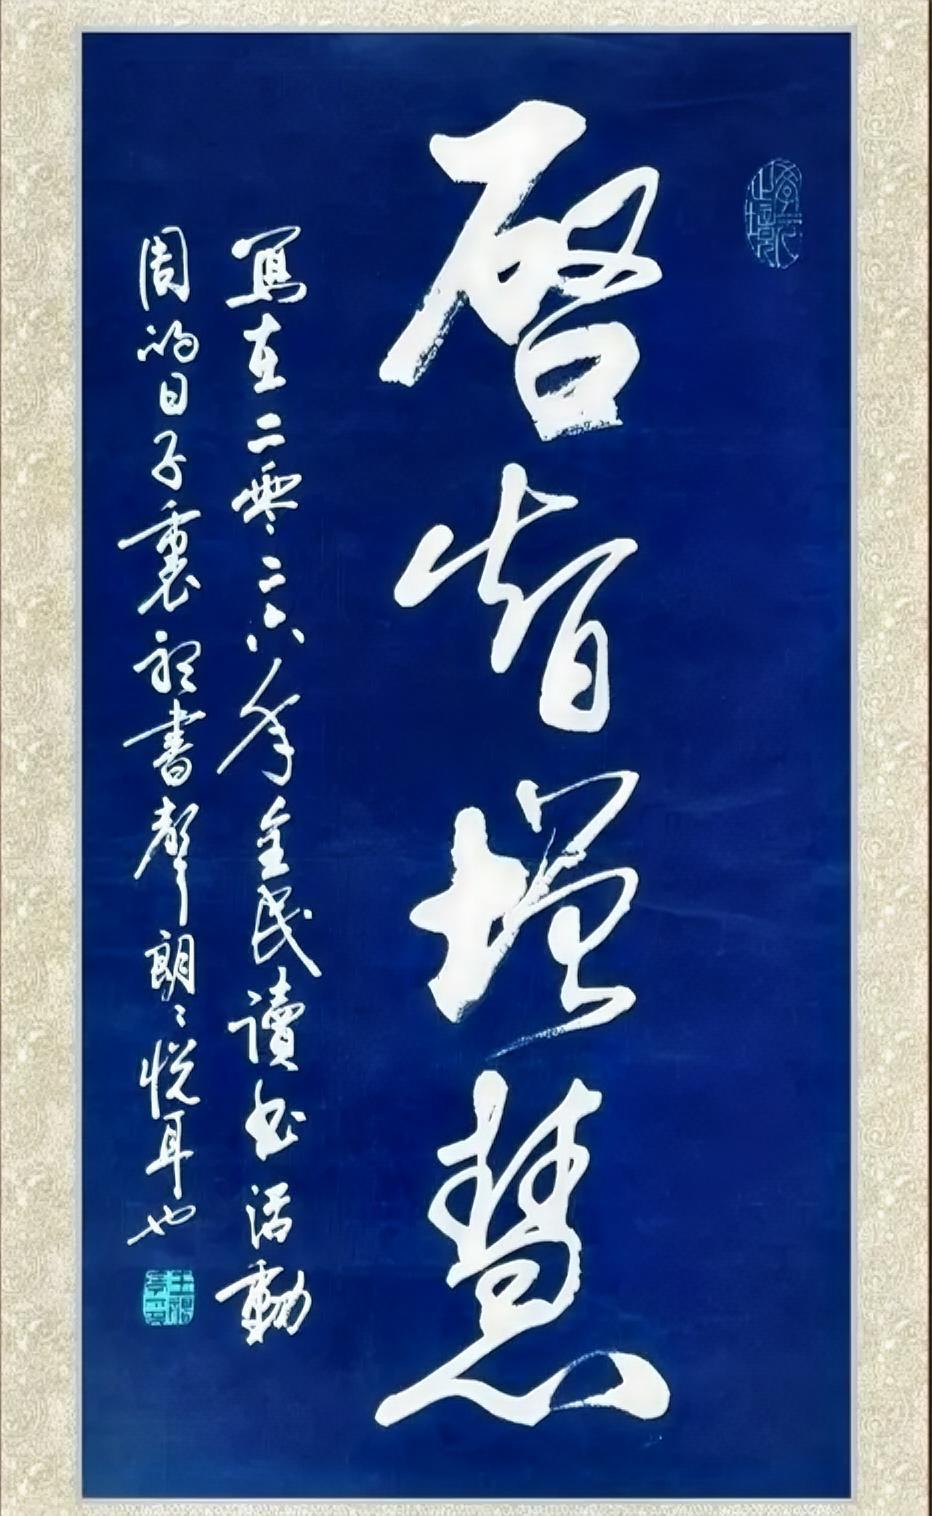 启智增慧
寫在二零二六年全民讀书活動
周的日子裏祝書聲朗々悦耳也